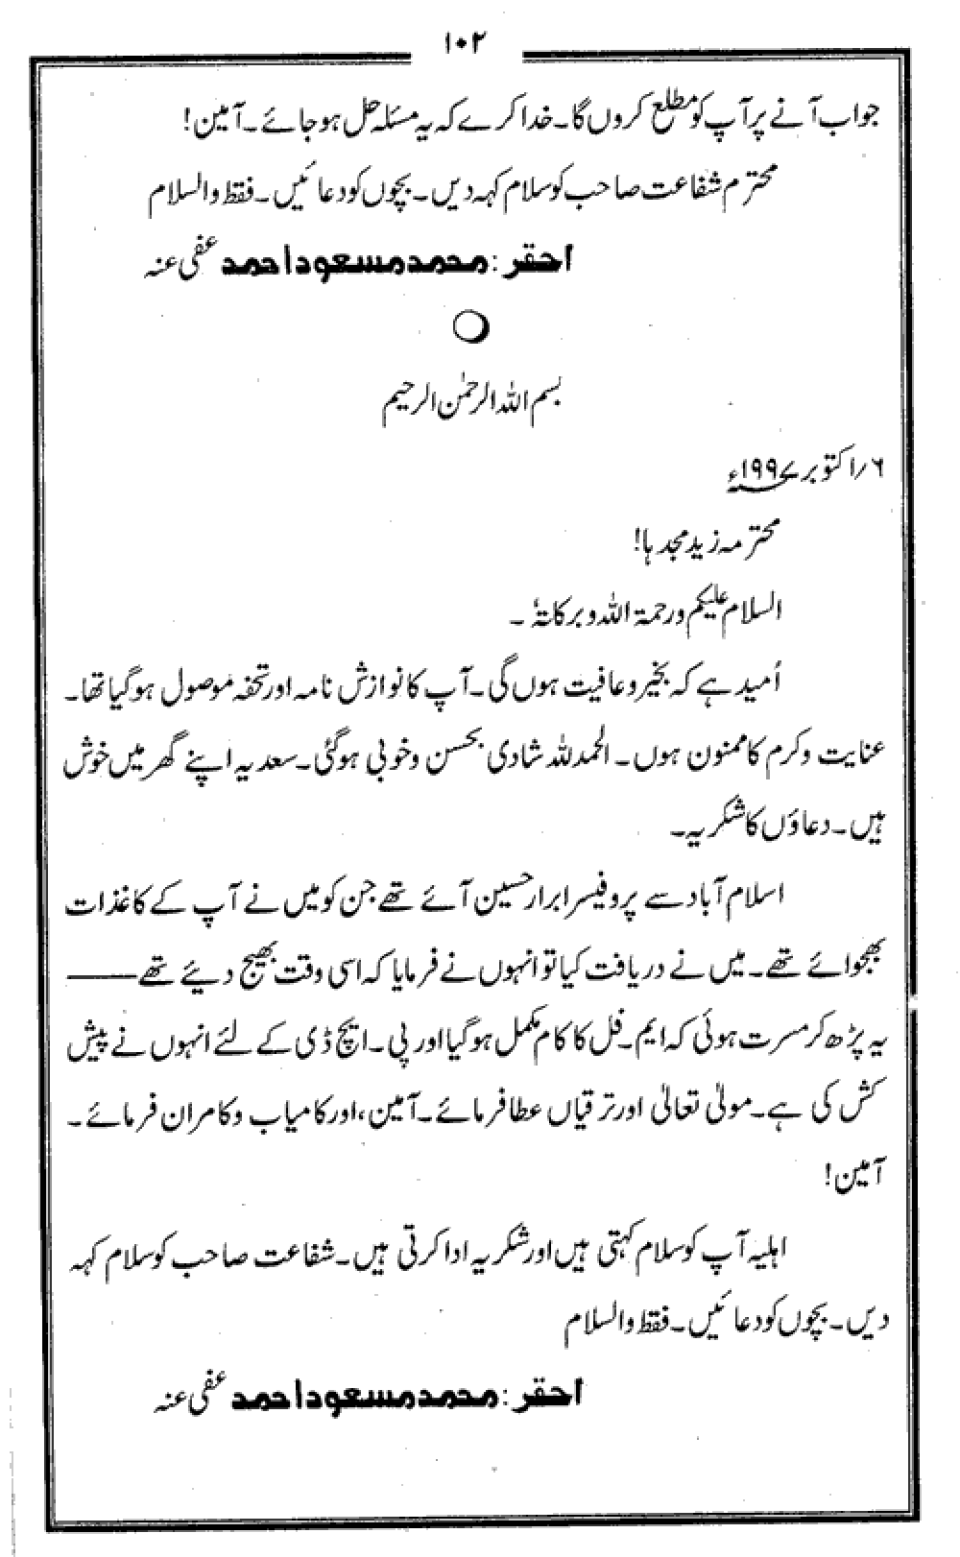 ۱۰۲
جواب آنے پر آپ کو مطلع کروں گا۔ خدا کرے کہ یہ مسئلہ حل ہو جائے۔ آمین!
محترم شفاعت صاحب کو سلام کہہ دیں۔ بچوں کو دعائیں۔ فقط والسلام
احقر : محمد مسعود احمد عفی عنہ
بسم اللہ الرحمٰن الرحیم
۶/اکتوبر ۱۹۹۷ء
محترمہ زید مجدہا!
السلام علیکم ورحمۃ اللہ وبرکاتہٗ۔
اُمید ہے کہ بخیر و عافیت ہوں گی۔ آپ کا نوازش نامہ اور تحفہ موصول ہو گیا تھا۔
عنایت و کرم کا ممنون ہوں۔ الحمدللہ شادی بحسن و خوبی ہوگئی۔ سعدیہ اپنے گھر میں خوش
ہیں۔ دعاؤں کا شکریہ۔
اسلام آباد سے پروفیسر ابرار حسین آئے تھے جن کو میں نے آپ کے کاغذات
بھجوائے تھے۔ میں نے دریافت کیا تو انہوں نے فرمایا کہ اسی وقت بھیج دیئے تھے——
یہ پڑھ کر مسرت ہوئی کہ ایم۔فل کا کام مکمل ہو گیا اور پی۔ ایچ ڈی کے لئے انہوں نے پیش
کش کی ہے۔ مولیٰ تعالیٰ اور ترقیاں عطا فرمائے۔ آمین، اور کامیاب و کامران فرمائے۔
آمین!
اہلیہ آپ کو سلام کہتی ہیں اور شکریہ ادا کرتی ہیں۔ شفاعت صاحب کو سلام کہہ
دیں۔ بچوں کو دعائیں۔ فقط والسلام
احقر : محمد مسعود احمد عفی عنہ